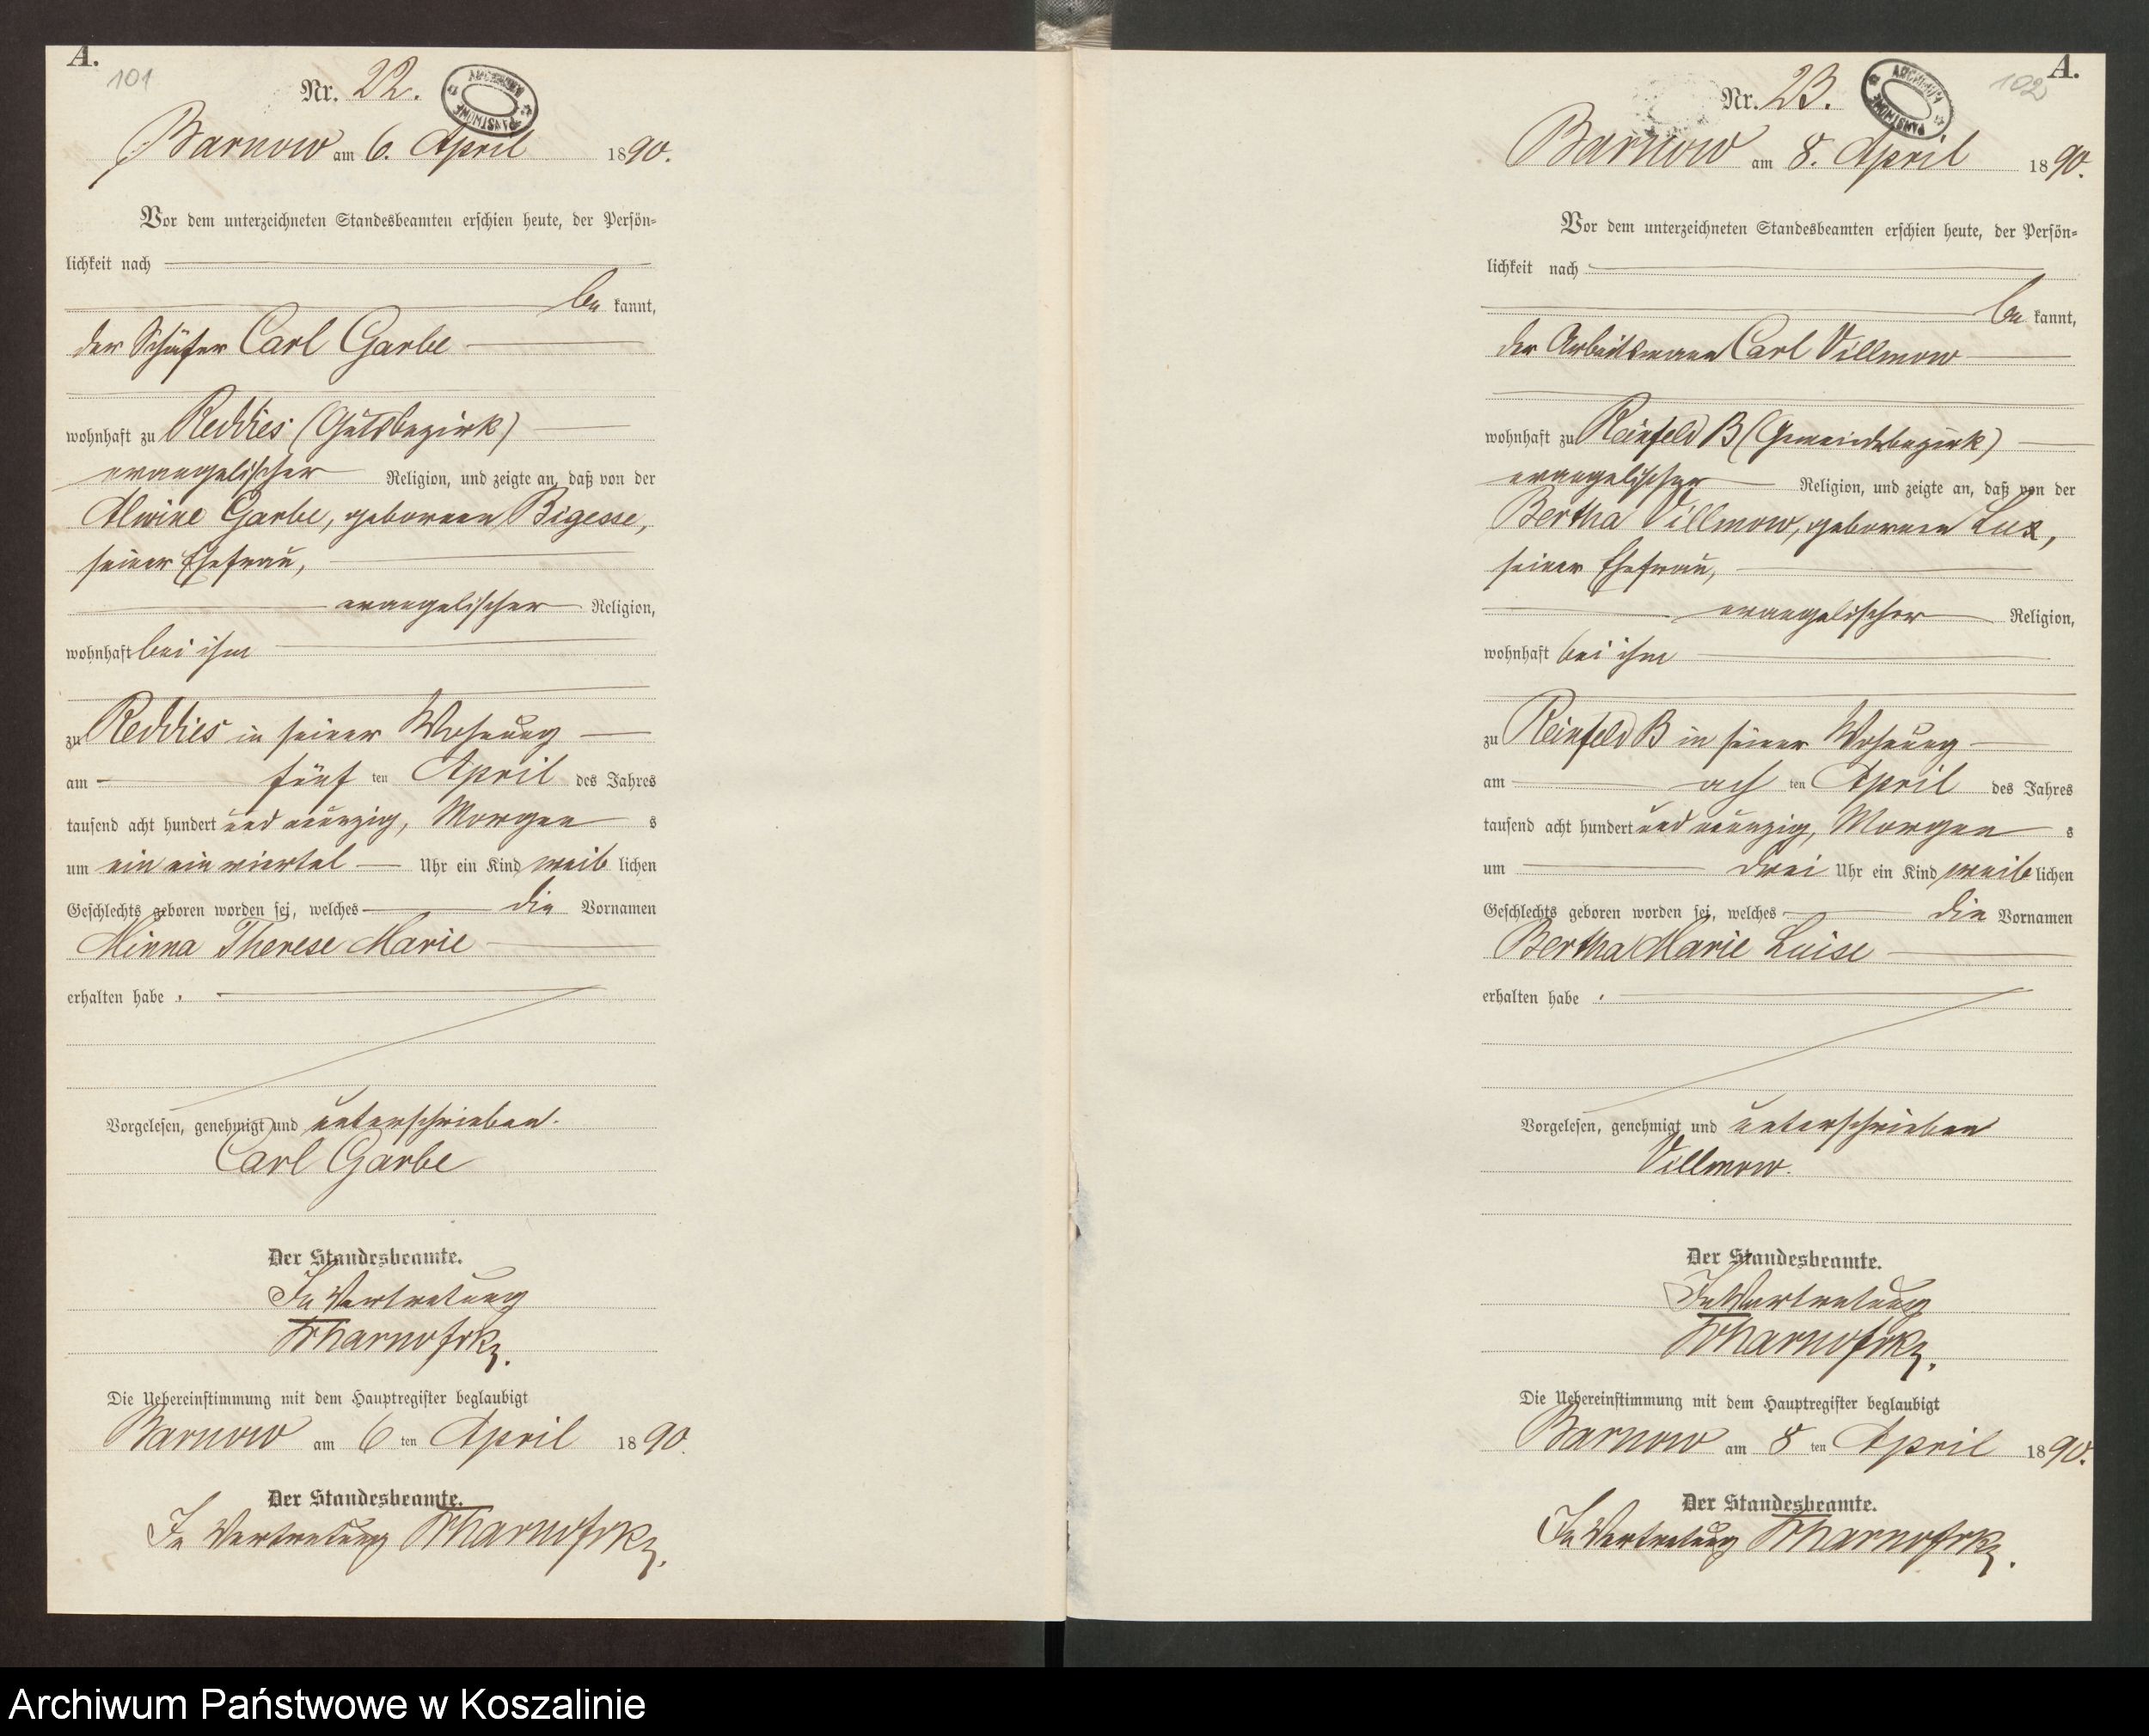 A.
101
Nr. 22.
Barnow am 6. April 1890.
Vor dem unterzeichneten Standesbeamten erschien heute, der Persön=
lichkeit nach
be kannt,
der Schäfer Carl Garbe
wohnhaft zu Reddies (Gutsbezirk)
evangelischer Religion, und zeigte an, daß von der
Alwine Garbe, geborenen Bigesse,
seiner Ehefrau,
evangelischer Religion,
wohnhaft bei ihm
zu Reddies in seiner Wohnung
am fünf ten April des Jahres
tausend acht hundert und neunzig, Morgen s
um ein ein viertel Uhr ein Kind weib lichen
Geschlechts geboren worden sei, welches die Vornamen
Minna Therese Marie
erhalten habe.
Vorgelesen, genehmigt und unterschrieben.
Carl Garbe
Der Standesbeamte.
In Vertretung
Die Uebereinstimmung mit dem Hauptregister beglaubigt
Barnow am 6 ten April 1890.
Der Standesbeamte.
In Vertretung
A.
102
Nr. 23.
Barnow am 8. April 1890.
Vor dem unterzeichneten Standesbeamten erschien heute, der Persön=
lichkeit nach
be kannt,
der Arbeitsmann Carl Villmow
wohnhaft zu Reinfeld B (Gemeindebezirk)
evangelischer Religion, und zeigte an, daß von der
Bertha Villmow, geborenen Lux,
seiner Ehefrau,
evangelischer Religion,
wohnhaft bei ihm
zu Reinfeld B in seiner Wohnung
am ach ten April des Jahres
tausend acht hundert und neunzig, Morgen s
um drei Uhr ein Kind weib lichen
Geschlechts geboren worden sei, welches die Vornamen
Bertha Marie Luise
erhalten habe.
Vorgelesen, genehmigt und unterschrieben
Villmow.
Der Standesbeamte.
In Vertretung
Die Uebereinstimmung mit dem Hauptregister beglaubigt
Barnow am 8 ten April 1890.
Der Standesbeamte.
In Vertretung
Archiwum Państwowe w Koszalinie